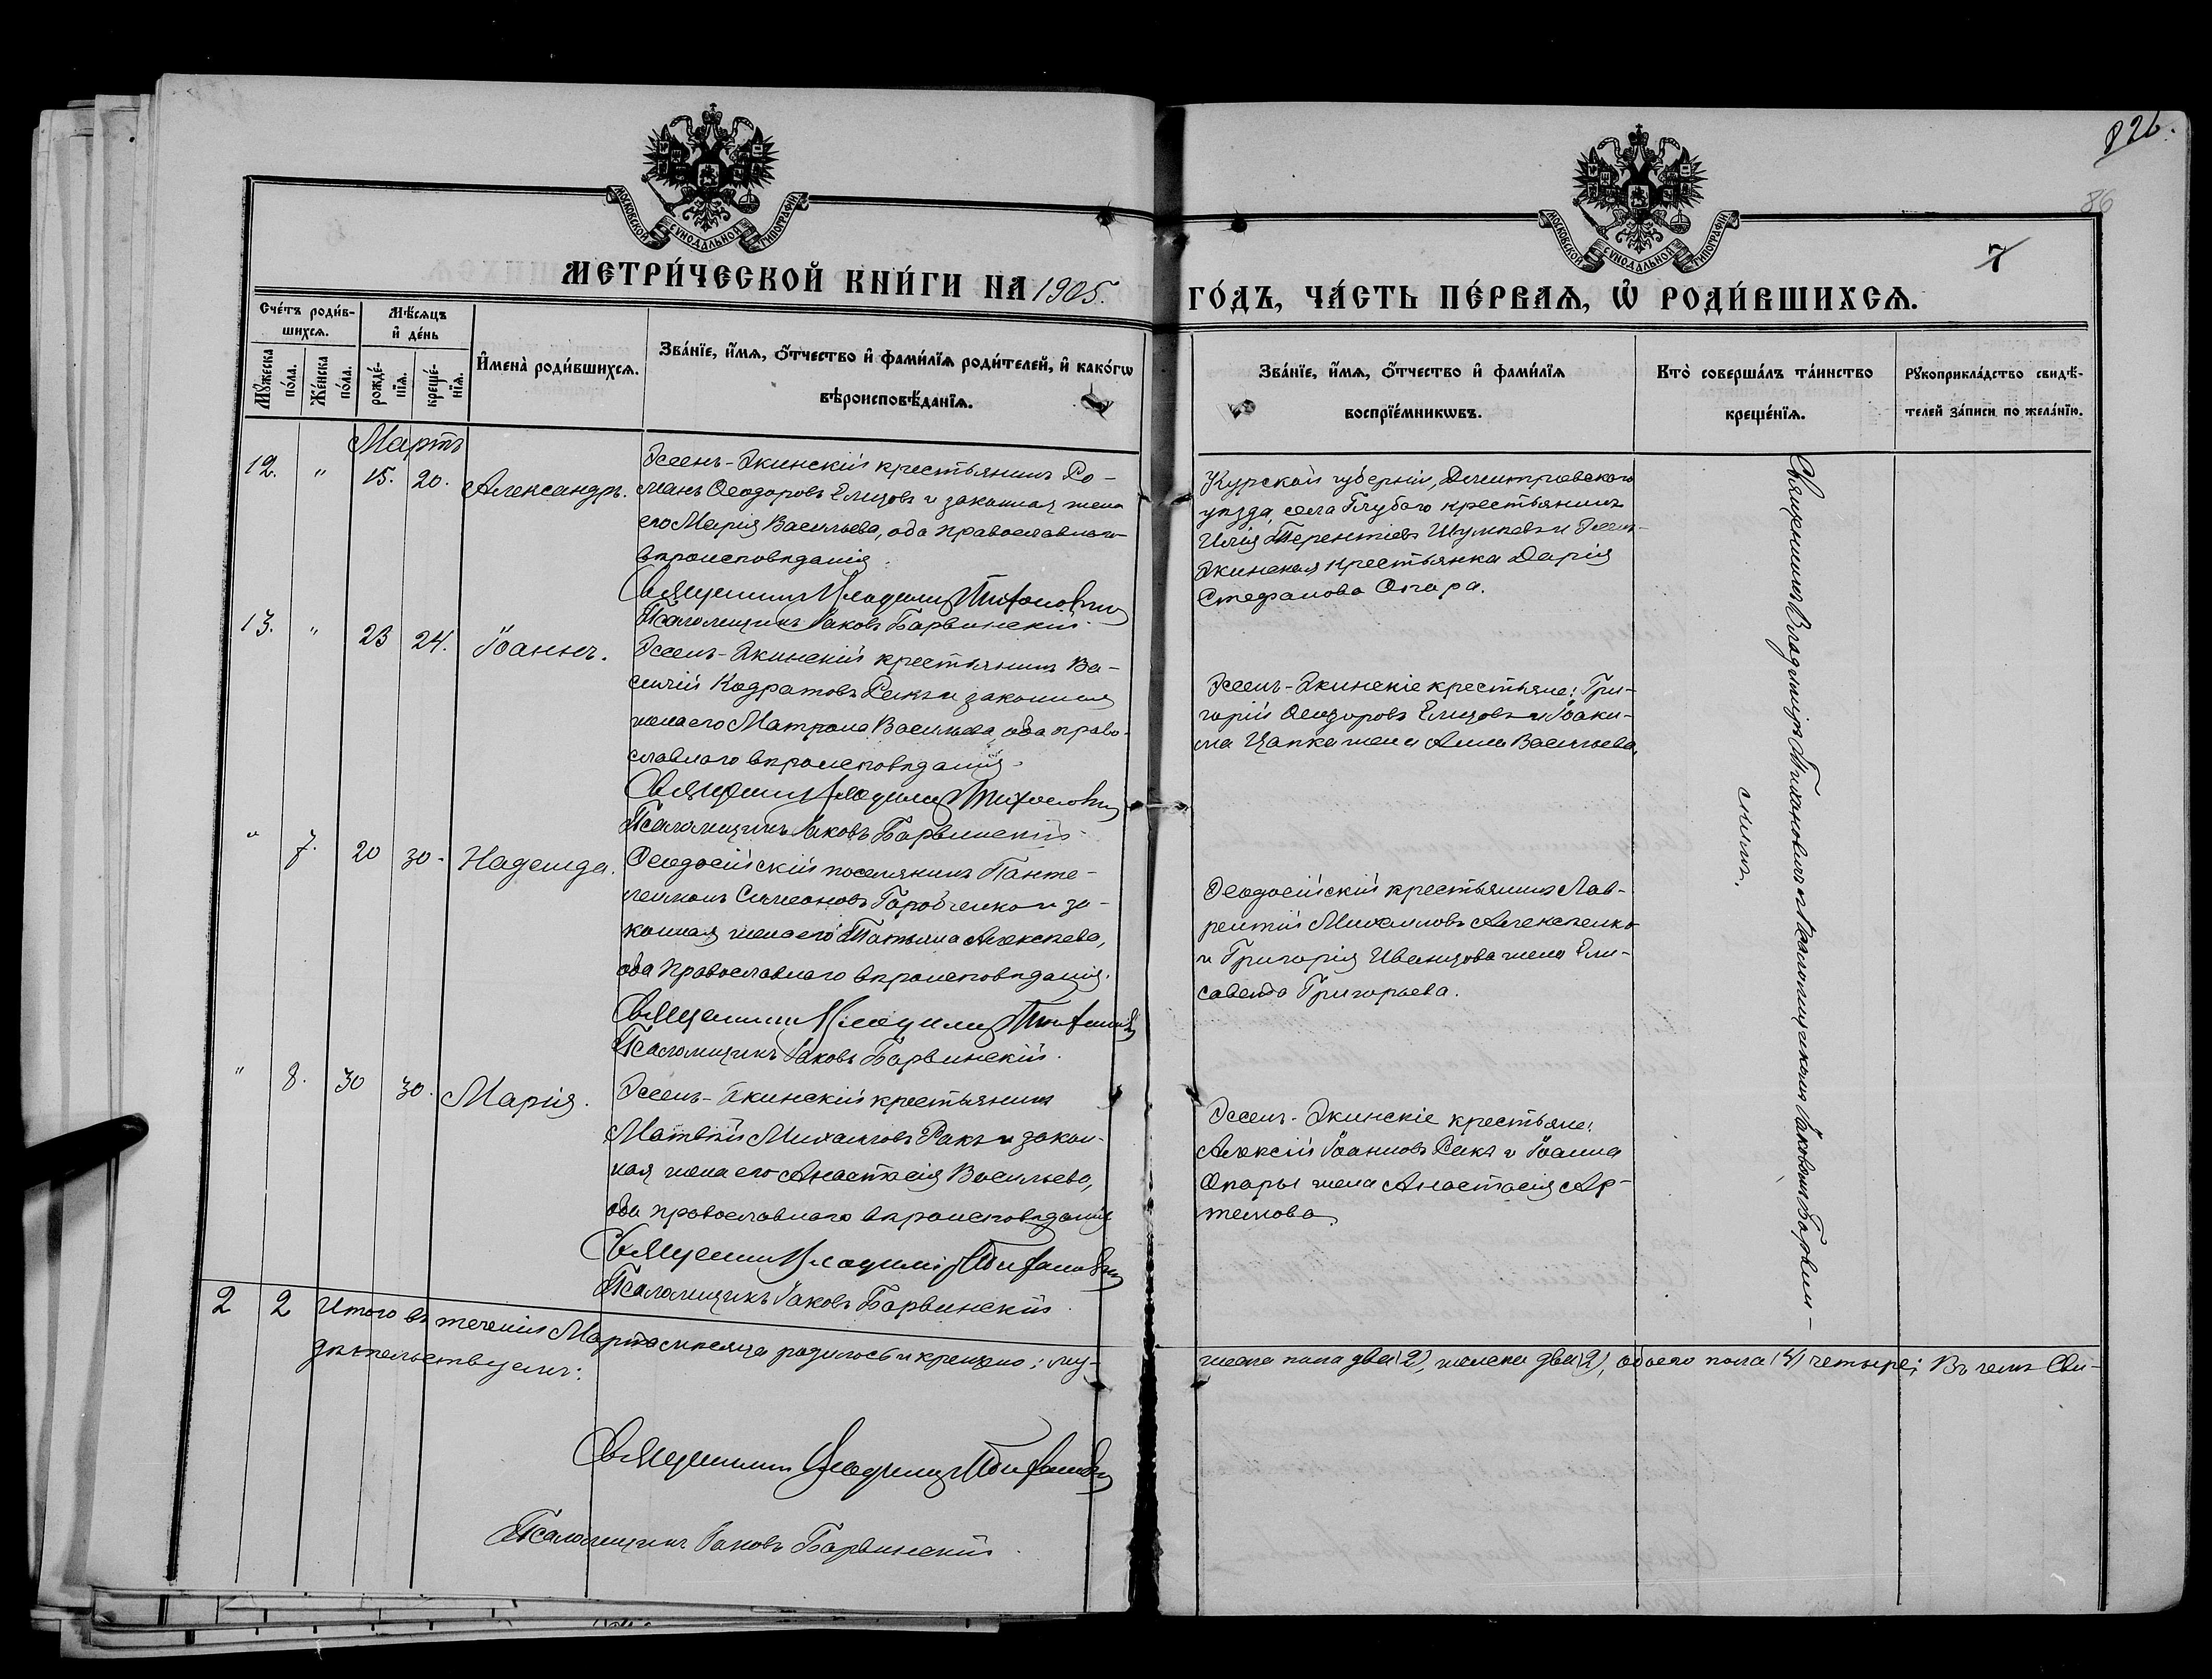 826.
86
7
МОСКОВСКОЙ СѴНОДАЛЬНОЙ ТИПОГРАФІИ
МОСКОВСКОЙ СѴНОДАЛЬНОЙ ТИПОГРАФІИ
МЕТРИ́ЧЕСКОЙ КНИ́ГИ НА 1905.
ГО́ДЪ, ЧА́СТЬ ПЕ́РВАѦ, Ѡ҆ РОДИ́ВШИХСѦ.
Сче́тъ роди́в-
шихсѧ.
Мѣ́сѧцъ
и҆ де́нь
Мꙋ́жеска
по́ла.
Же́нска
по́ла.
рожде́-
нїѧ.
креще́-
нїѧ.
И҆мена̀ роди́вшихсѧ.
Зва́нїе, и҆́мѧ, ѻ҆́тчество и҆ фами́лїѧ роди́телей, и҆ како́гѡ
вѣроисповѣ́данїѧ.
Зва́нїе, и҆́мѧ, ѻ҆́тчество и҆ фами́лїѧ
воспрїе́мникѡвъ.
Кто̀ соверша́лъ та́инство
креще́нїѧ.
Рꙋкоприкла́дство свидѣ́-
телей за́писи по жела́нїю.
Мартъ
12. " 15. 20. Александръ.
Эссенъ-Экинскій крестьянинъ Ро-
манъ Ѳеодоровъ Елизовъ и законная жена
его Марія Васильева, оба православнаго
вѣроисповѣданія.
Священникъ Владиміръ Тихановичъ
Псаломщикъ Іаковъ Барвинскій.
Курской губерніи, Димитріевскаго
уѣзда, села Глубого крестьянинъ
Илія Терентіевъ Шумневъ и Эссен-
Экинская крестьянка Дарія
Стефанова Опара.
13. " 23 24. Іоаннъ.
Эссенъ-Экинскій крестьянинъ Ва-
силій Кодратовъ Ракъ и законная
жена его Матрона Васильева, оба право-
славнаго вѣроисповѣданія.
Священникъ Владиміръ Тихановичъ
Псаломщикъ Іаковъ Барвинскій.
Эссенъ-Экинскіе крестьяне: Гри-
горій Ѳеодоровъ Елизовъ и Іоаки-
ма Цапка жена Анна Васильева.
" 7. 20 30. Надежда.
Ѳеодосійскій поселянинъ Панте-
леимонъ Симеоновъ Горобченко и за-
конная жена его Татьяна Алексѣева,
оба православнаго вѣроисповѣданія.
Священникъ Владиміръ Тихановичъ
Псаломщикъ Іаковъ Барвинскій.
Ѳеодосійскій крестьянинъ Лав-
рентій Михаиловъ Алексѣенко
и Григорія Иванцова жена Ели-
савета Григорьева.
" 8. 30 30. Марія.
Эссенъ-Экинскій крестьянинъ
Матвѣй Михаиловъ Ракъ и закон-
ная жена его Анастасія Васильева,
оба православнаго вѣроисповѣданія
Священникъ Владиміръ Тихановичъ
Псаломщикъ Іаковъ Барвинскій.
Эссенъ-Экинскіе крестьяне:
Алексій Іоанновъ Ракъ и Іоанна
Опары жена Анастасія Ар-
темова.
Священникомъ Владиміромъ Тихановичемъ и Псаломщикомъ Іаковомъ Барвин-
скимъ.
2 2 Итого въ теченіи Марта мѣсяца родилось и крещено: му-
жеска пола два (2), женска два (2), обоего пола (4) четыре; Въ чемъ сви-
дѣтельствуемъ:
Священникъ Владиміръ Тихановичъ
Псаломщикъ Іаковъ Барвинскій.